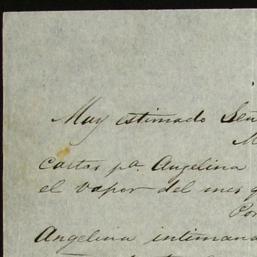 Muy estimado Señ
M
cartas pa. Angelina
el vapor del mes q
Por
Angelina intimand